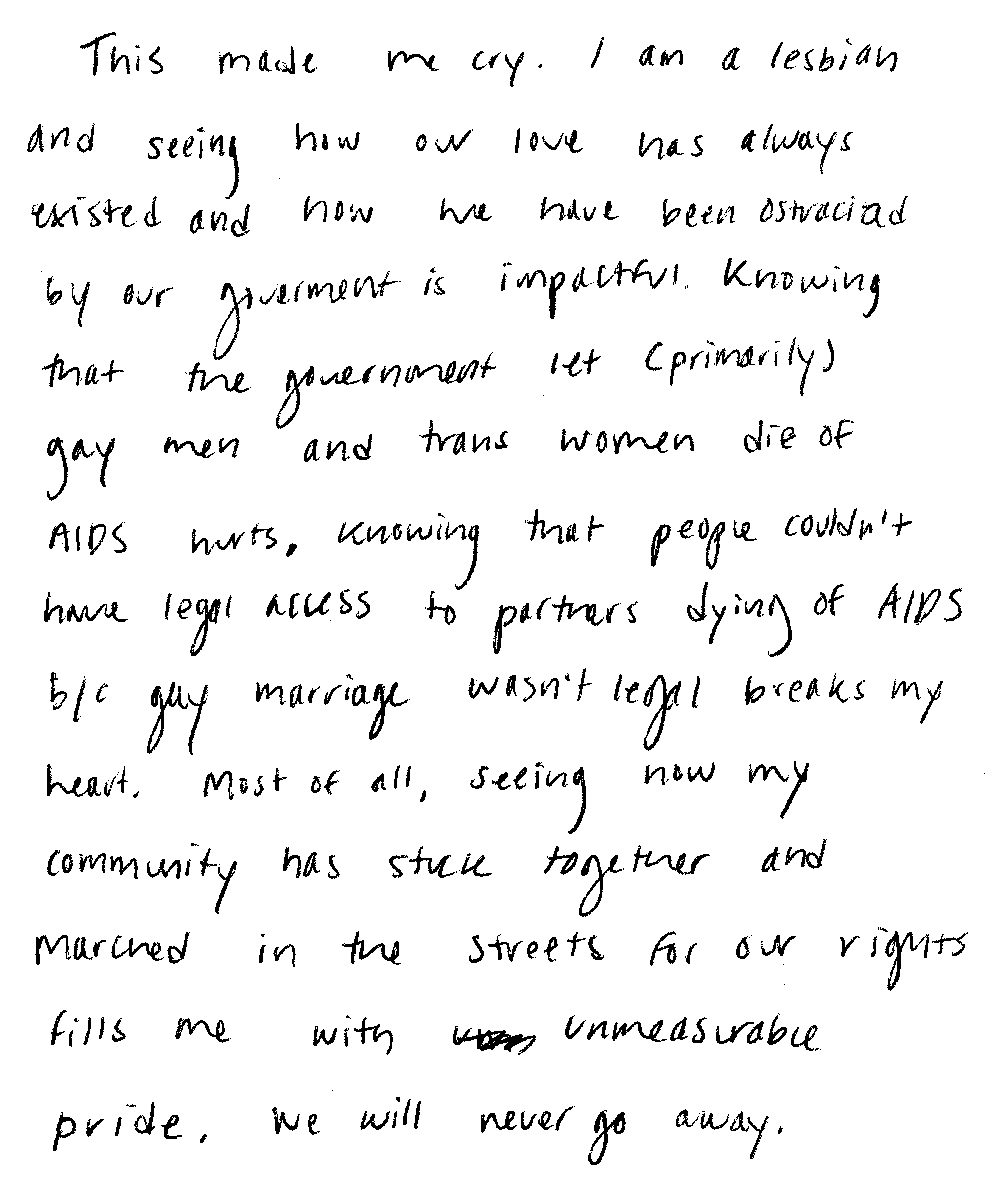 This made me cry. I am a lesbian
and seeing how our love has always
existed and how we have been ostraciad
by our goverment is impactful. Knowing
that the government let (primarily)
gay men and trans women die of
AIDS hurts. Knowing that people couldn't
have legal access to partners dying of AIDS
b/c gay marriage wasn't legal breaks my
heart. Most of all, seeing how my
community has stuck together and
marched in the streets for our rights
fills me with unmeasurable
pride. We will never go away.